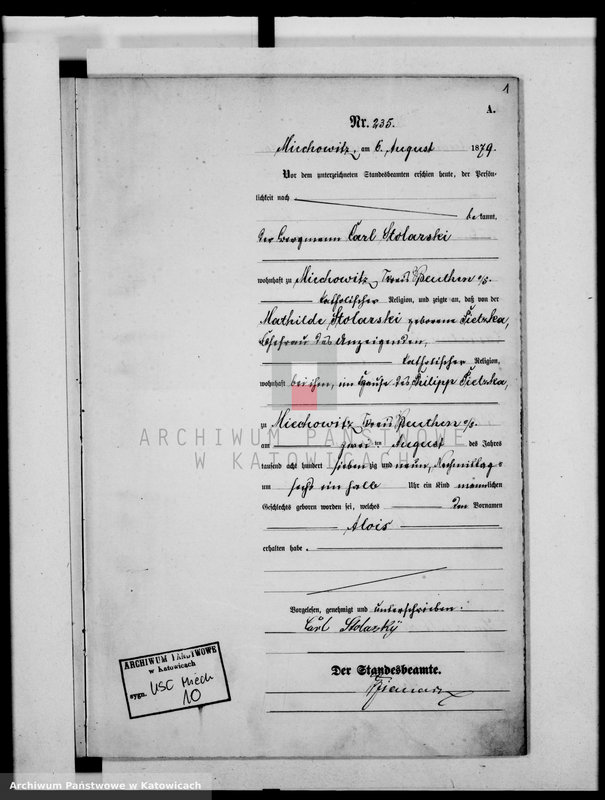 1
A.
Nr. 235.
Miechowitz, am 6. August 1879.
Vor dem unterzeichneten Standesbeamten erschien heute, der Persön-
lichkeit nach
be kannt,
der Bergmann Carl Stolarski
wohnhaft zu Miechowitz, Kreis Beuthen o/s.
katholischer Religion, und zeigte an, daß von der
Mathilde Stolarski geborene Pietzka,
Ehefrau des Anzeigenden,
katholischer Religion,
wohnhaft bei ihm, im Hause des Philipp Pietzka,
zu Miechowitz, Kreis Beuthen o/s.
am zwei ten August des Jahres
tausend acht hundert sieben zig und neun, Nachmittag=
um sechs ein halb Uhr ein Kind männlichen
Geschlechts geboren worden sei, welches den Vornamen
Alois
erhalten habe.
Vorgelesen, genehmigt und unterschrieben:
Carl Stolarzky
Der Standesbeamte.
ARCHIWUM PAŃSTWOWE
W KATOWICACH
ARCHIWUM PAŃSTWOWE
w Katowicach
sygn. USC Miech
10
Archiwum Państwowe w Katowicach